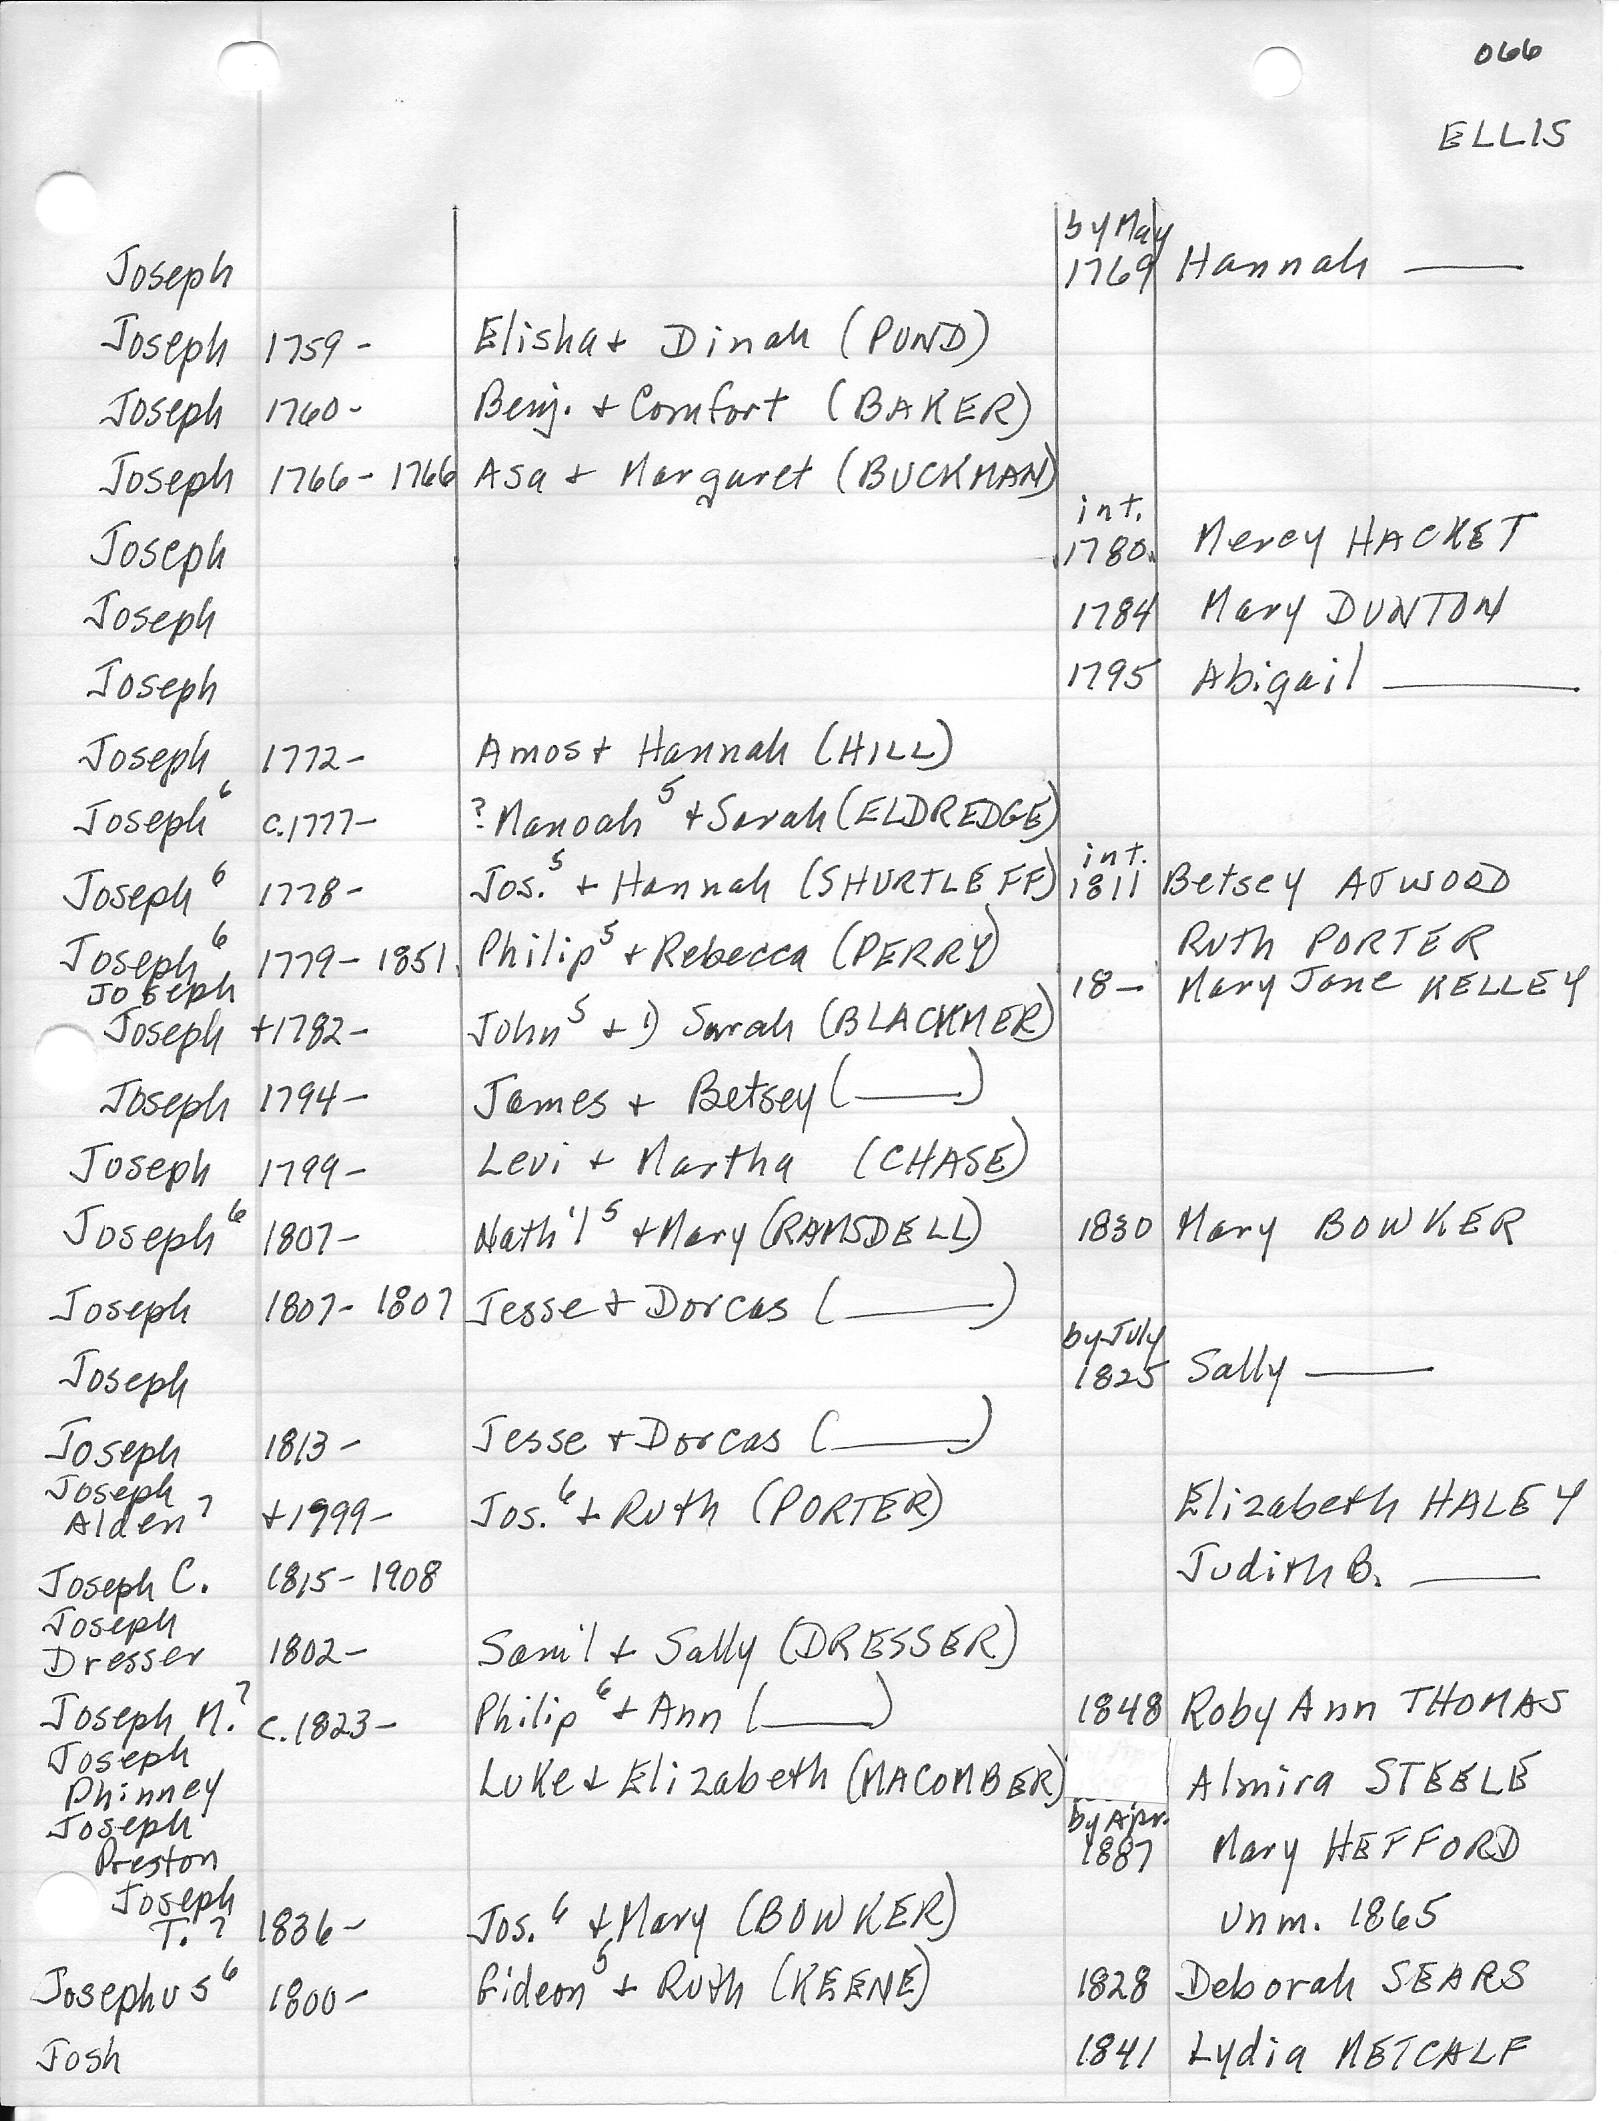 066
ELLIS
Joseph by May 1769 Hannah ——
Joseph 1759- Elisha + Dinah (POND)
Joseph 1760- Benj. + Comfort (BAKER)
Joseph 1766-1766 Asa + Margaret (BUCKMAN)
Joseph int. 1780 Mercy HACKET
Joseph 1784 Mary DUNTON
Joseph 1795 Abigail ——
Joseph 1772- Amos + Hannah (HILL)
Joseph⁶ c.1777- ?Manoah⁵ + Sarah (ELDREDGE)
Joseph⁶ 1778- Jos.⁵ + Hannah (SHURTLEFF) int. 1811 Betsey ATWOOD
Joseph⁶ 1779-1851 Philip⁵ + Rebecca (PERRY) Ruth PORTER
Joseph 18- Mary Jane KELLEY
Joseph +1782- John⁵ + 1) Sarah (BLACKMER)
Joseph 1794- James + Betsey (——)
Joseph 1799- Levi + Martha (CHASE)
Joseph⁶ 1807- Nath'l⁵ + Mary (RAMSDELL) 1830 Mary BOWKER
Joseph 1807-1807 Jesse + Dorcas (——)
Joseph by July 1825 Sally ——
Joseph 1813- Jesse + Dorcas (——)
Joseph Alden⁷ +1999- Jos.⁶ + Ruth (PORTER) Elizabeth HALEY
Joseph C. 1815-1908 Judith B. ——
Joseph Dresser 1802- Sam'l + Sally (DRESSER)
Joseph M.⁷ c.1823- Philip⁶ + Ann (——) 1848 Roby Ann THOMAS
Joseph Phinney Luke + Elizabeth (MACOMBER) Almira STEELE
Joseph Preston by Apr. 1887 Mary HEFFORD
Joseph T.⁷ 1836- Jos.⁶ + Mary (BOWKER) unm. 1865
Josephus⁶ 1800- Gideon⁵ + Ruth (KEENE) 1828 Deborah SEARS
Josh 1841 Lydia METCALF